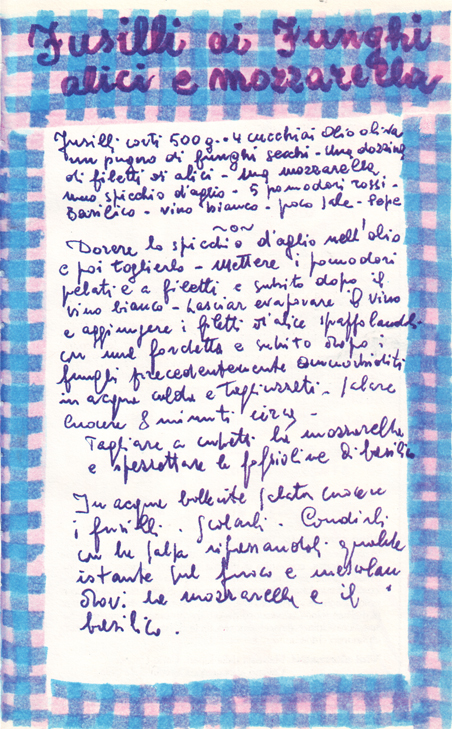 Fusilli ai Funghi
alici e mozzarella
Fusilli corti 500 g. - 4 cucchiai olio oliva
un pugno di funghi secchi - una dozzina
di filetti di alici - una mozzarella
uno spicchio d'aglio - 5 pomodori rossi -
Basilico - vino bianco - poco sale - Pepe
Dorare lo spicchio d'aglio nell'olio
e poi toglierlo - Mettere i pomodori
pelati e a filetti e subito dopo il
vino bianco - Lasciar evaporare il vino
e aggiungere i filetti d'alice spappolandoli
con una forchetta e subito dopo i
funghi precedentemente ammorbiditi
in acqua calda e tagliuzzati. Salare
cuocere 8 minuti circa -
Tagliare a cubetti la mozzarella
e spezzettare le foglioline di basilico
In acqua bollente salata cuocere
i fusilli. Scolarli. Condirli
con la salsa ripassandoli qualche
istante sul fuoco e mescolan
dovi la mozzarella e il
basilico.